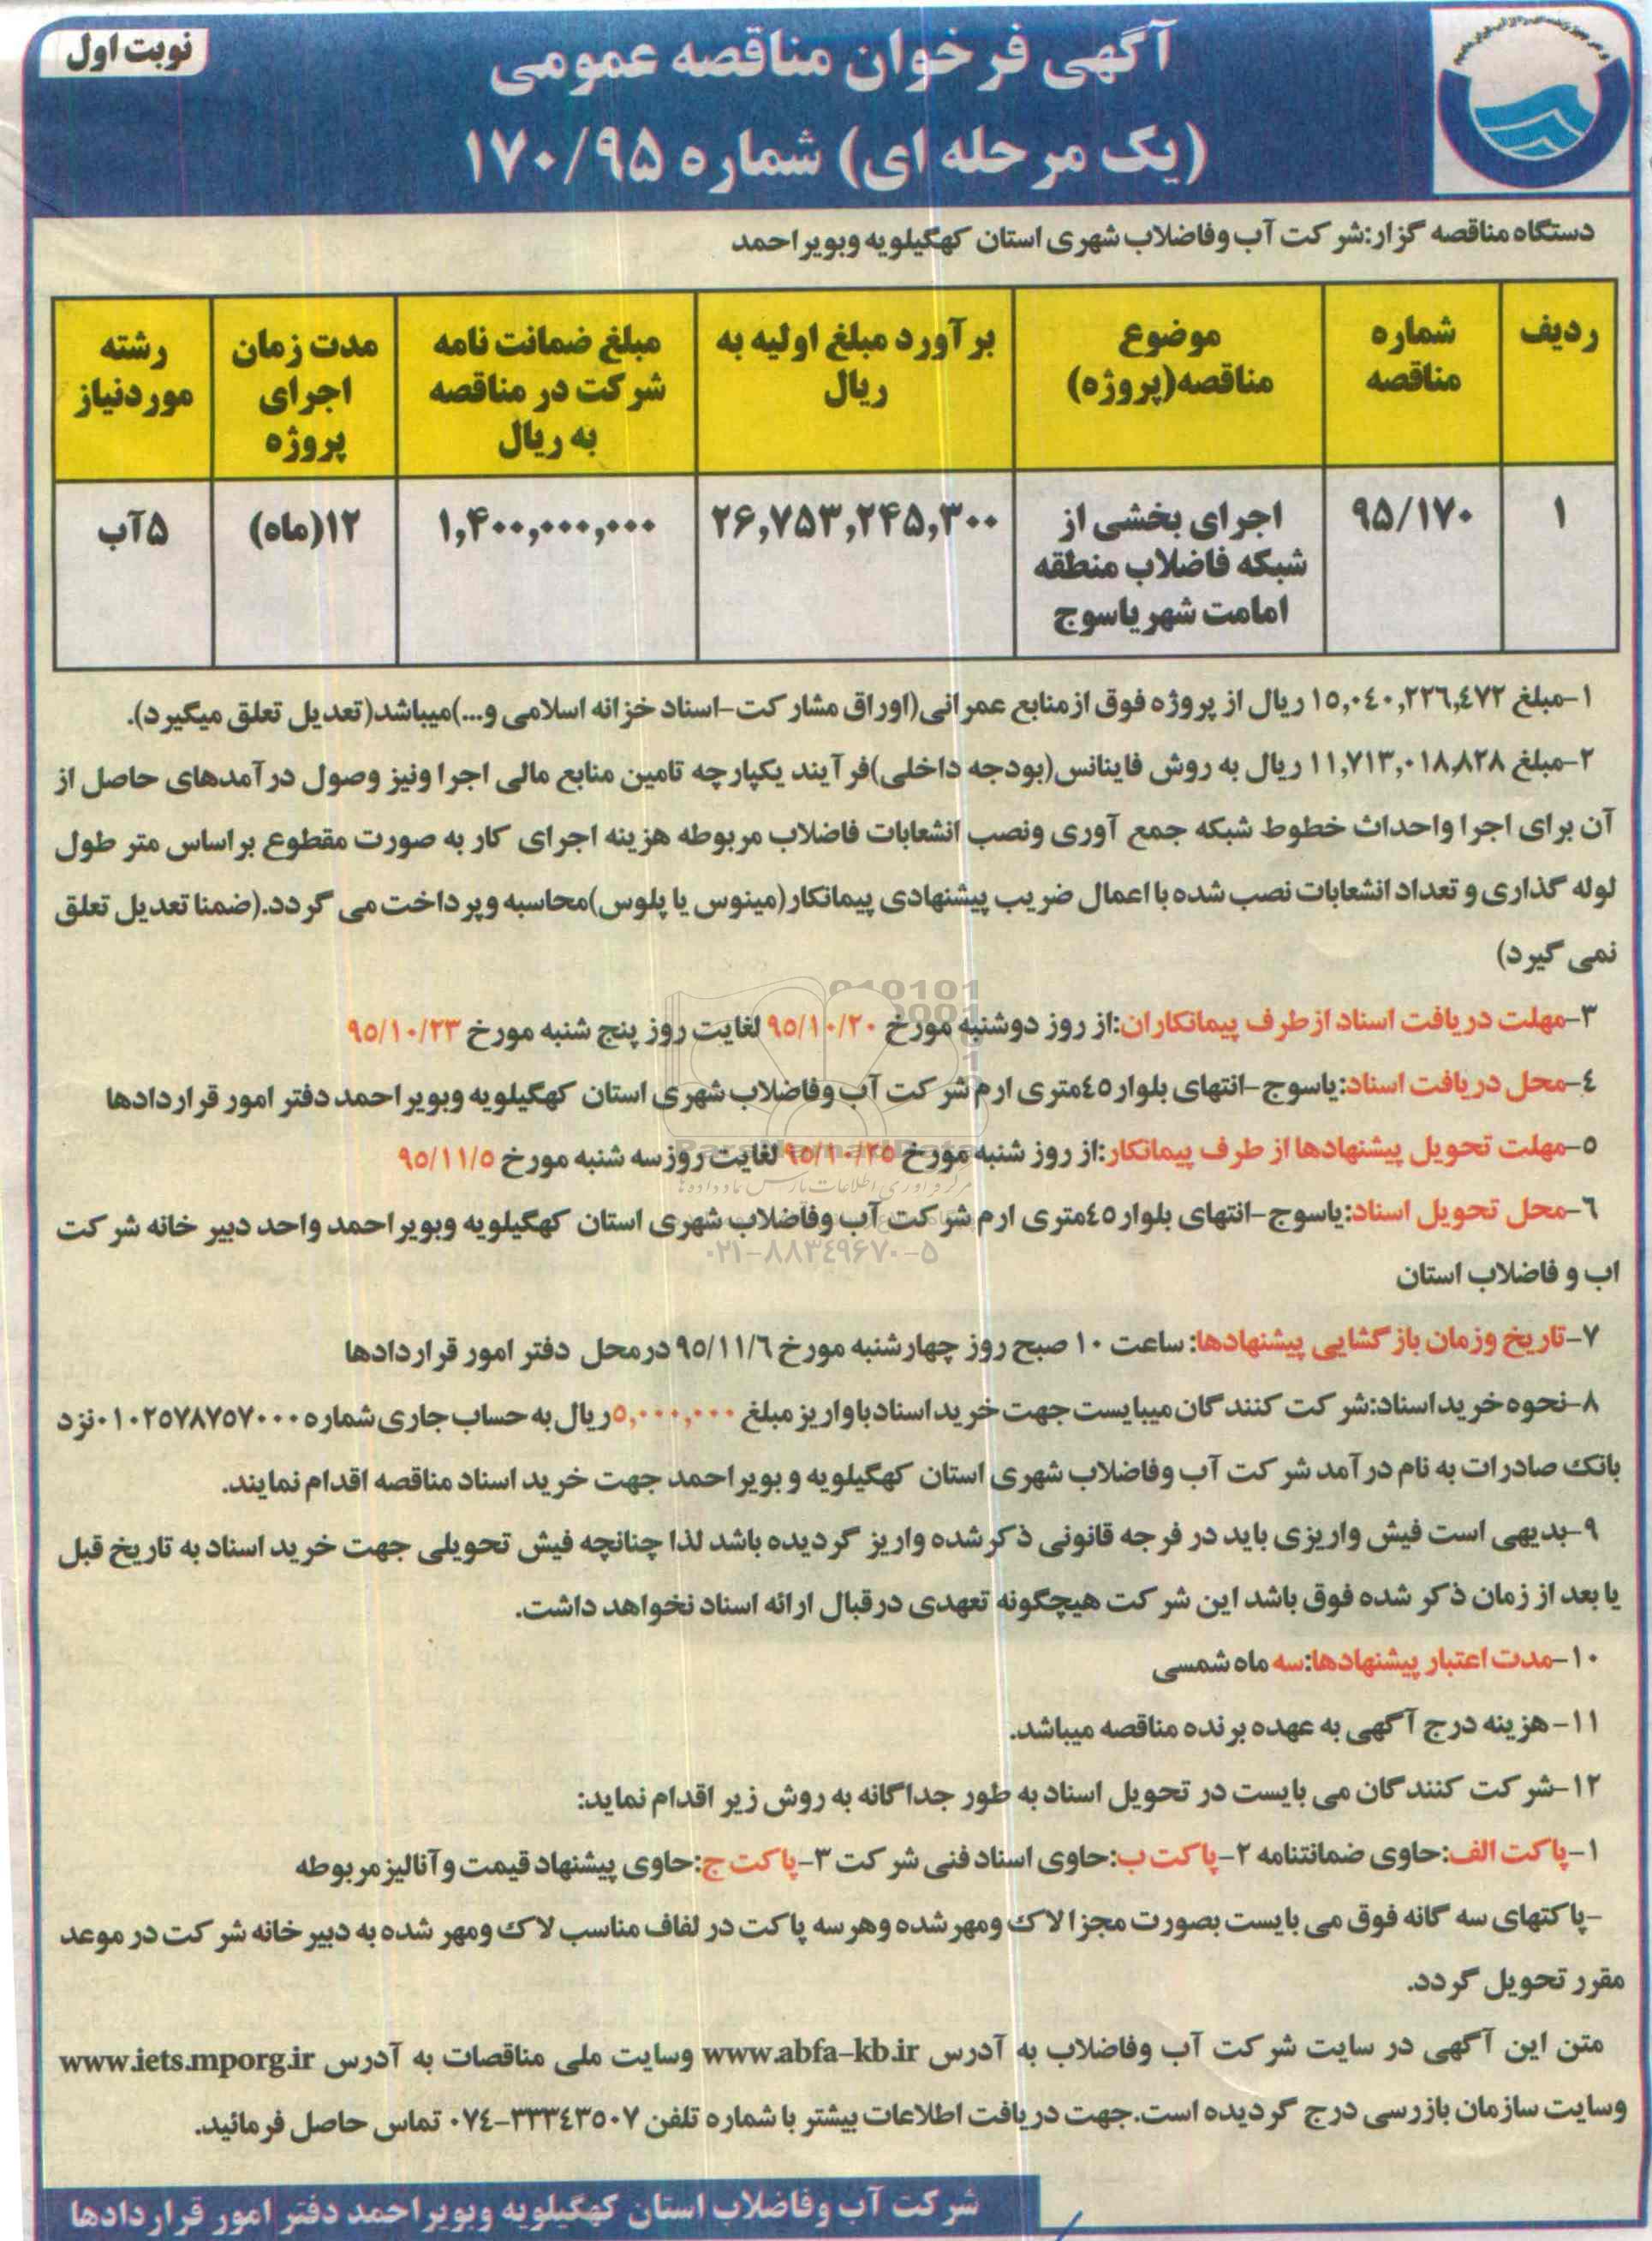 نوبت اول
آگهی فرخوان مناقصه عمومی
(یک مرحله ای) شماره ۱۷۰/۹۵
دستگاه مناقصه گزار:شرکت آب وفاضلاب شهری استان کهگیلویه وبویراحمد
ردیف
شماره
مناقصه
موضوع
مناقصه(پروژه)
برآورد مبلغ اولیه به
ریال
مبلغ ضمانت نامه
شرکت در مناقصه
به ریال
مدت زمان
اجرای
پروژه
رشته
موردنیاز
۱
۹۵/۱۷۰
اجرای بخشی از
شبکه فاضلاب منطقه
امامت شهر یاسوج
۲۶,۷۵۳,۲۴۵,۳۰۰
۱,۴۰۰,۰۰۰,۰۰۰
۱۲(ماه)
۵آب
۱-مبلغ ۱۵,۰۴۰,۲۲۶,۴۷۲ ریال از پروژه فوق ازمنابع عمرانی(اوراق مشارکت-اسناد خزانه اسلامی و...)میباشد(تعدیل تعلق میگیرد).
۲-مبلغ ۱۱,۷۱۳,۰۱۸,۸۲۸ ریال به روش فاینانس(بودجه داخلی)فرآیند یکپارچه تامین منابع مالی اجرا ونیز وصول درآمدهای حاصل از
آن برای اجرا واحداث خطوط شبکه جمع آوری ونصب انشعابات فاضلاب مربوطه هزینه اجرای کار به صورت مقطوع براساس متر طول
لوله گذاری و تعداد انشعابات نصب شده با اعمال ضریب پیشنهادی پیمانکار(مینوس یا پلوس)محاسبه وپرداخت می گردد.(ضمنا تعدیل تعلق
نمی گیرد)
۳-مهلت دریافت اسناد ازطرف پیمانکاران:از روز دوشنبه مورخ ۹۵/۱۰/۲۰ لغایت روز پنج شنبه مورخ ۹۵/۱۰/۲۳
۴-محل دریافت اسناد:یاسوج-انتهای بلوار۴۵متری ارم شرکت آب وفاضلاب شهری استان کهگیلویه وبویراحمد دفتر امور قراردادها
۵-مهلت تحویل پیشنهادها از طرف پیمانکار:از روز شنبه مورخ ۹۵/۱۰/۲۵ لغایت روزسه شنبه مورخ ۹۵/۱۱/۵
۶-محل تحویل اسناد:یاسوج-انتهای بلوار۴۵متری ارم شرکت آب وفاضلاب شهری استان کهگیلویه وبویراحمد واحد دبیر خانه شرکت
اب و فاضلاب استان
۷-تاریخ وزمان بازگشایی پیشنهادها: ساعت ۱۰ صبح روز چهارشنبه مورخ ۹۵/۱۱/۶ درمحل دفتر امور قراردادها
۸-نحوه خرید اسناد:شرکت کنندگان میبایست جهت خرید اسناد باواریز مبلغ ۵,۰۰۰,۰۰۰ریال به حساب جاری شماره ۰۱۰۲۵۷۸۷۵۷۰۰۰نزد
بانک صادرات به نام درآمد شرکت آب وفاضلاب شهری استان کهگیلویه و بویراحمد جهت خرید اسناد مناقصه اقدام نمایند.
۹-بدیهی است فیش واریزی باید در فرجه قانونی ذکرشده واریز گردیده باشد لذا چنانچه فیش تحویلی جهت خرید اسناد به تاریخ قبل
یا بعد از زمان ذکر شده فوق باشد این شرکت هیچگونه تعهدی درقبال ارائه اسناد نخواهد داشت.
۱۰-مدت اعتبار پیشنهادها:سه ماه شمسی
۱۱- هزینه درج آگهی به عهده برنده مناقصه میباشد.
۱۲-شرکت کنندگان می بایست در تحویل اسناد به طور جداگانه به روش زیر اقدام نماید:
۱-پاکت الف:حاوی ضمانتنامه ۲-پاکت ب:حاوی اسناد فنی شرکت ۳-پاکت ج:حاوی پیشنهاد قیمت و آنالیز مربوطه
-پاکتهای سه گانه فوق می بایست بصورت مجزا لاک ومهرشده وهرسه پاکت در لفاف مناسب لاک ومهر شده به دبیرخانه شرکت در موعد
مقرر تحویل گردد.
متن این آگهی در سایت شرکت آب وفاضلاب به آدرس www.abfa-kb.ir وسایت ملی مناقصات به آدرس www.iets.mporg.ir
وسایت سازمان بازرسی درج گردیده است.جهت دریافت اطلاعات بیشتر با شماره تلفن ۰۷۴-۳۳۳۴۳۵۰۷ تماس حاصل فرمائید.
شرکت آب وفاضلاب استان کهگیلویه وبویراحمد دفتر امور قراردادها
ParsNamadData
۰۲۱-۸۸۳۴۹۶۷۰-۵